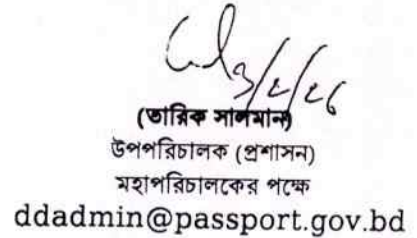 (তারিক সালমান)
উপপরিচালক (প্রশাসন)
মহাপরিচালকের পক্ষে
ddadmin@passport.gov.bd